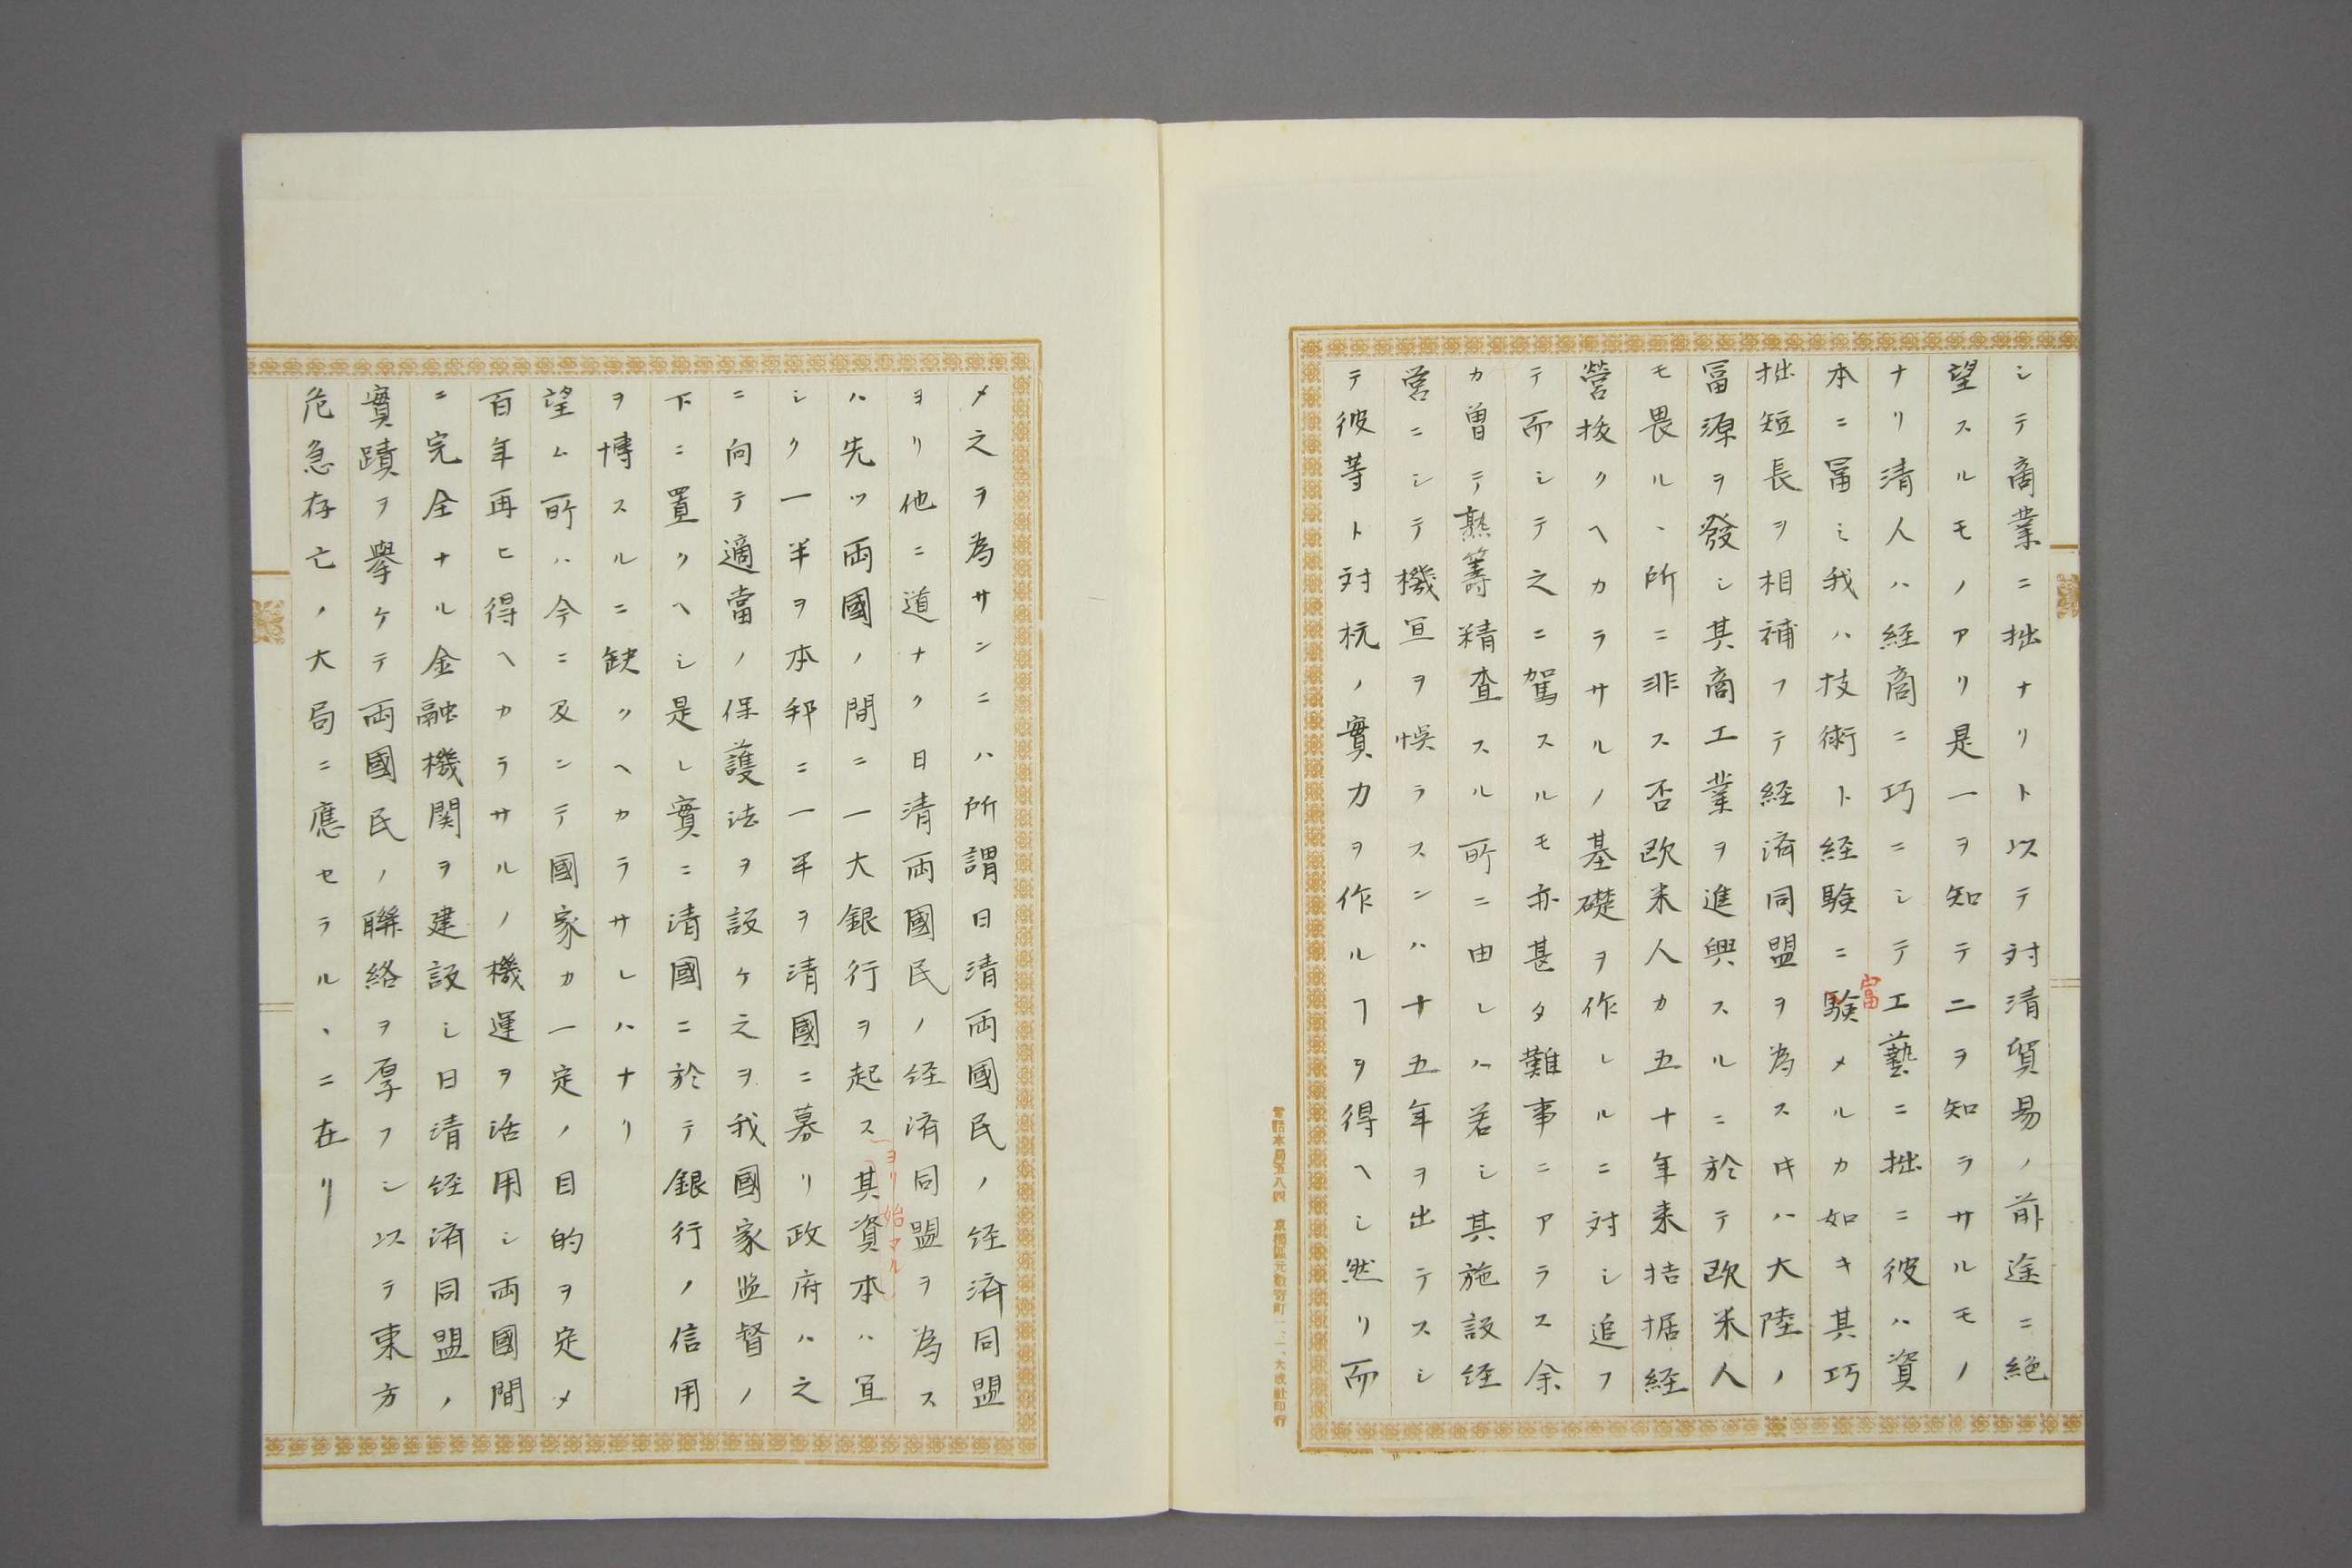 シテ商業ニ拙ナリト以テ対清貿易ノ前途ニ絶
望スルモノアリ是一ヲ知テ二ヲ知ラサルモノ
ナリ清人ハ経商ニ巧ニシテ工藝ニ拙ニ彼ハ資
本ニ冨ミ我ハ技術ト経験ニ験メルカ如キ其巧
富
拙短長ヲ相補フテ経済同盟ヲ為スキハ大陸ノ
冨源ヲ發シ其商工業ヲ進興スルニ於テ欧米人
モ畏ルヽ所ニ非ス否欧米人カ五十年来拮据経
營抜クヘカラサルノ基礎ヲ作レルニ対シ追フ
テ而シテ之ニ駕スルモ亦甚タ難事ニアラス余
カ曽テ熟籌精査スル所ニ由レハ若シ其施設経
営ニシテ機宜ヲ悞ラスンハ十五年ヲ出テスシ
テ彼等ト対杭ノ實力ヲ作ルヿヲ得ヘシ然リ而
メ之ヲ為サンニハ所謂日清両國民ノ経済同盟
ヨリ他ニ道ナク日清両國民ノ経済同盟ヲ為ス
ハ先ツ両國ノ間ニ一大銀行ヲ起ス其資本ハ宜
ヨリ始マル
シク一半ヲ本邦ニ一半ヲ清國ニ募リ政府ハ之
ニ向テ適當ノ保護法ヲ設ケ之ヲ我國家监督ノ
下ニ置クヘシ是レ實ニ清國ニ於テ銀行ノ信用
ヲ博スルニ缺クヘカラサレハナリ
望ム所ハ今ニ及ンテ國家カ一定ノ目的ヲ定メ
百年再ヒ得ヘカラサルノ機運ヲ活用シ両國間
ニ完全ナル金融機関ヲ建設シ日清経済同盟ノ
實蹟ヲ擧ケテ両國民ノ聯絡ヲ厚フシ以テ東方
危急存亡ノ大局ニ應セラルヽニ在リ